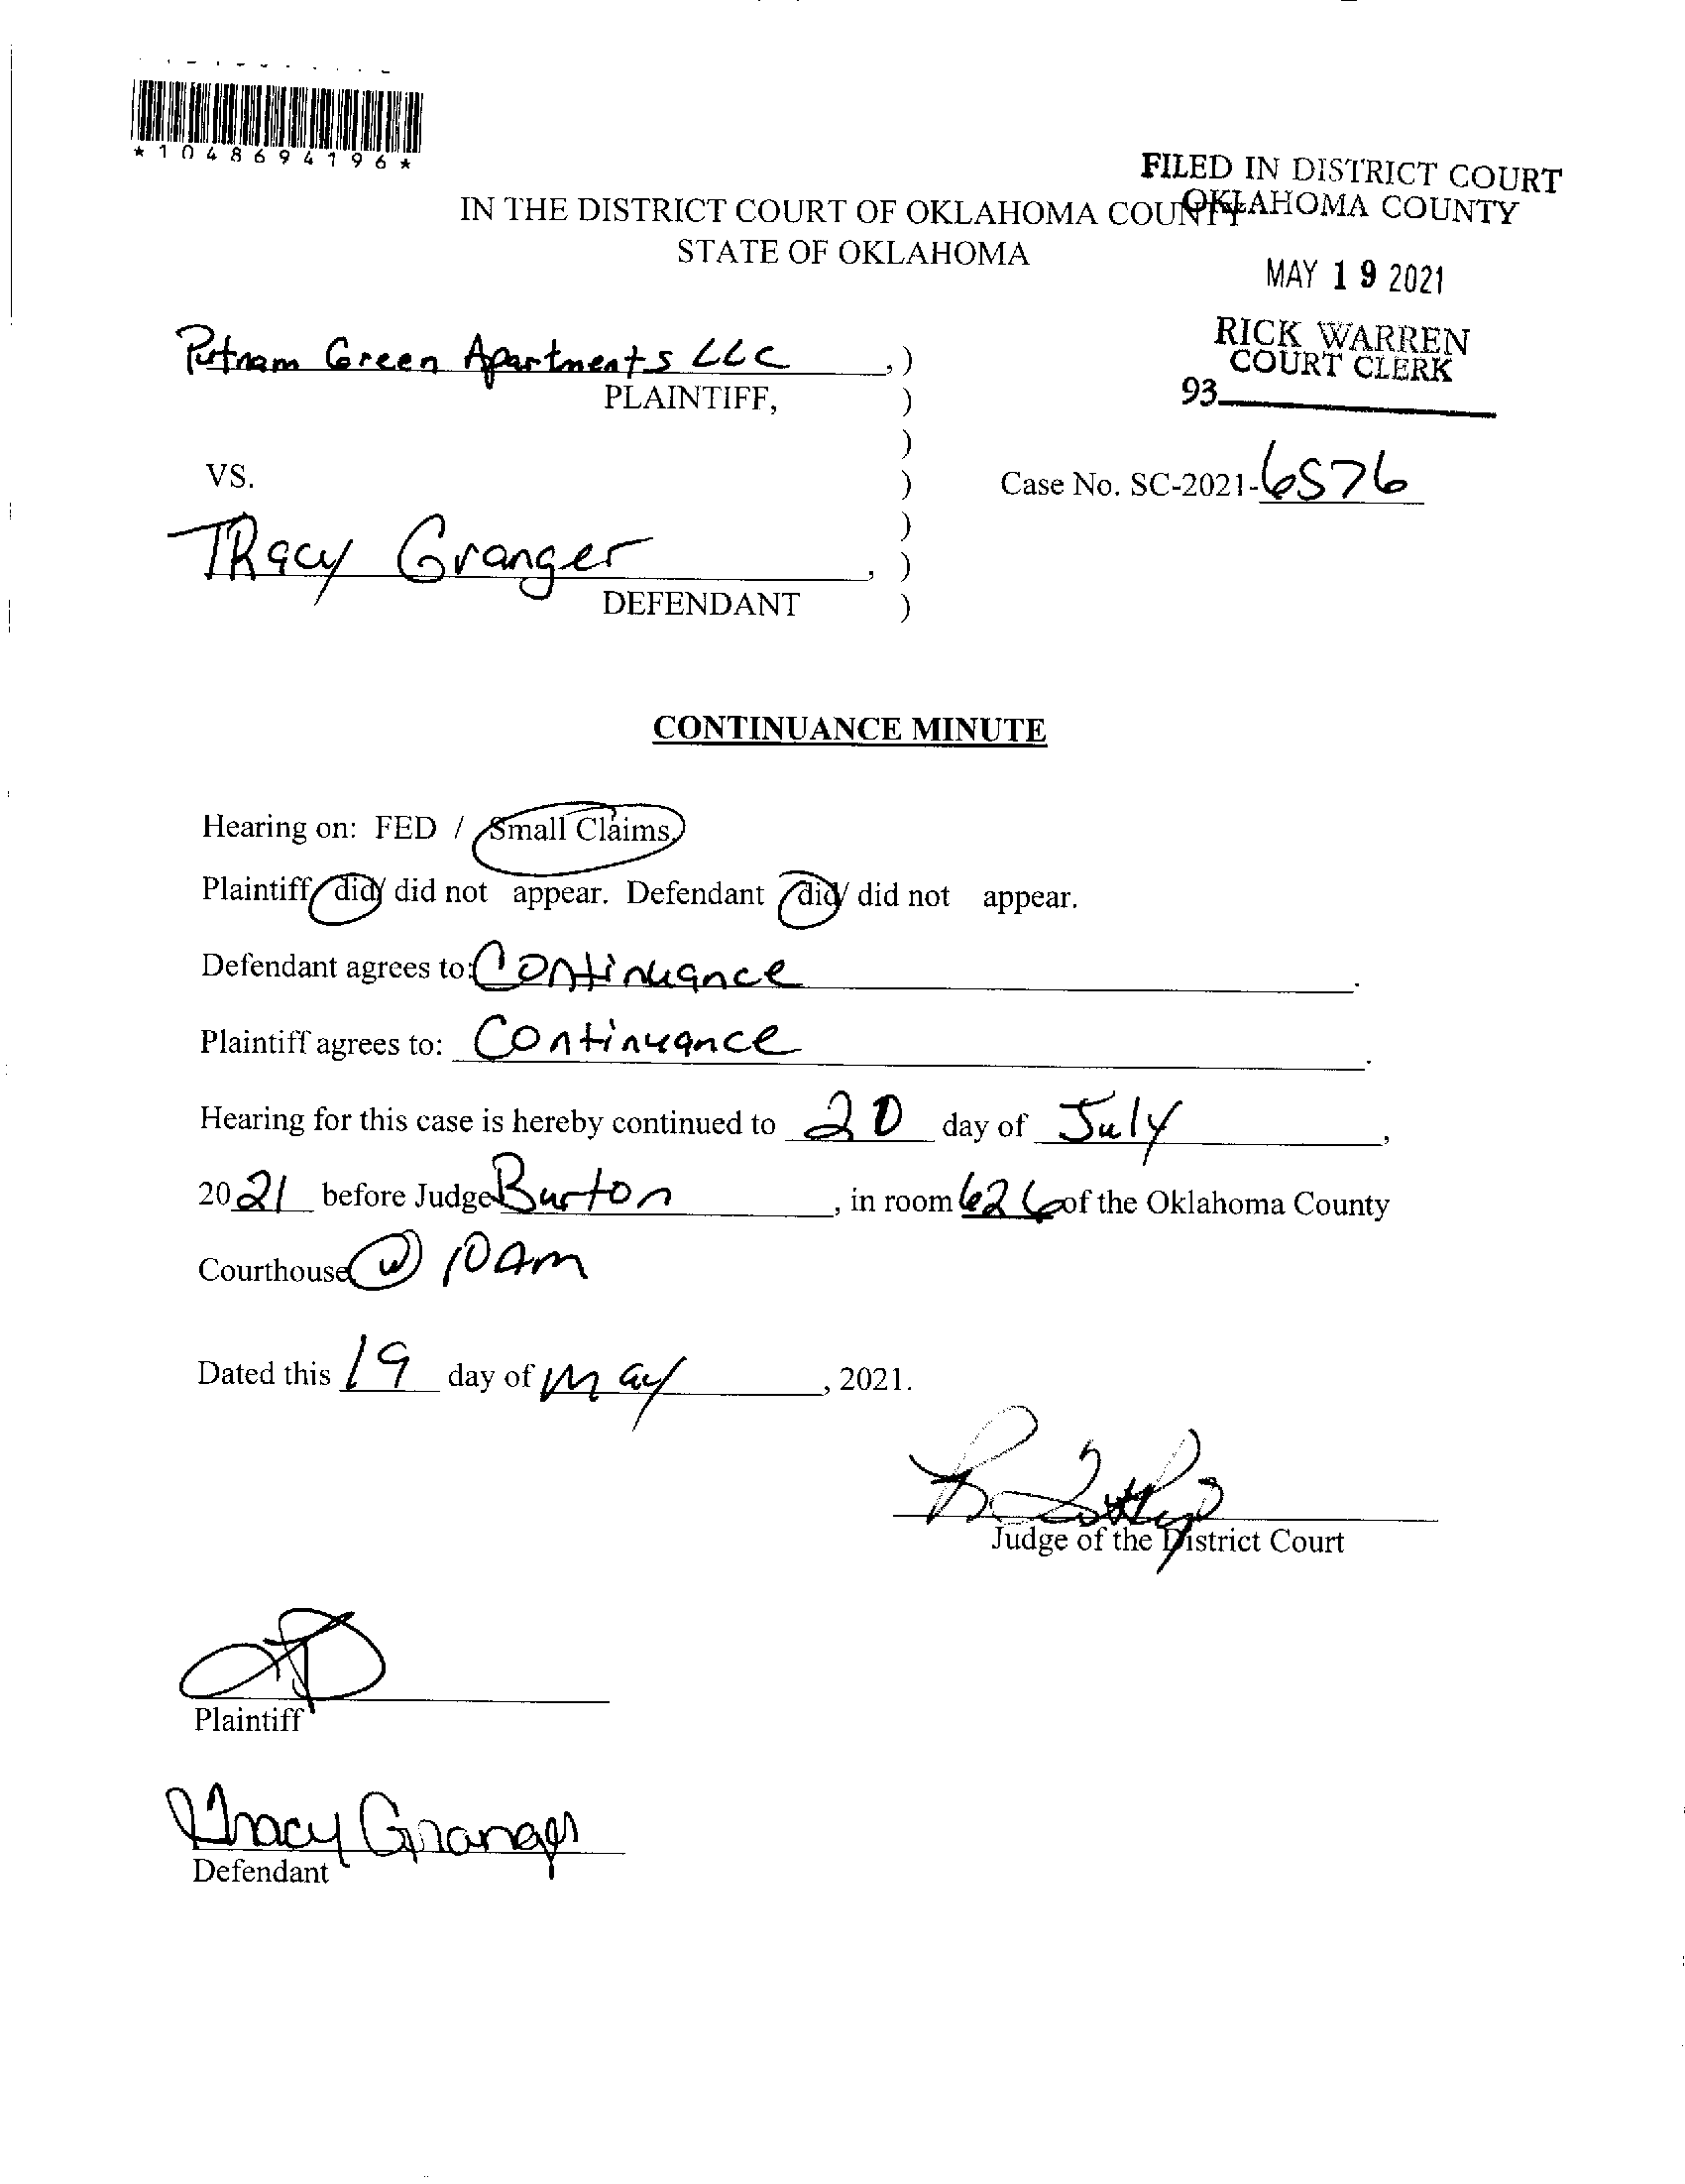 *1048694196*
FILED IN DISTRICT COURT
OKLAHOMA COUNTY
IN THE DISTRICT COURT OF OKLAHOMA COUNTY
STATE OF OKLAHOMA
MAY 19 2021
RICK WARREN
COURT CLERK
93
Putnam Green Apartments LLC , )
PLAINTIFF, )
)
VS. )
Case No. SC-2021-6576
)
TRacy Granger , )
DEFENDANT )
CONTINUANCE MINUTE
Hearing on: FED / Small Claims.
Plaintiff did/ did not appear. Defendant did/ did not appear.
Defendant agrees to: Continuance .
Plaintiff agrees to: Continuance .
Hearing for this case is hereby continued to 20 day of July ,
2021 before Judge Burton , in room 626 of the Oklahoma County
Courthouse @ 10Am
Dated this 19 day of May , 2021.
Judge of the District Court
Plaintiff
Tracy Granger
Defendant